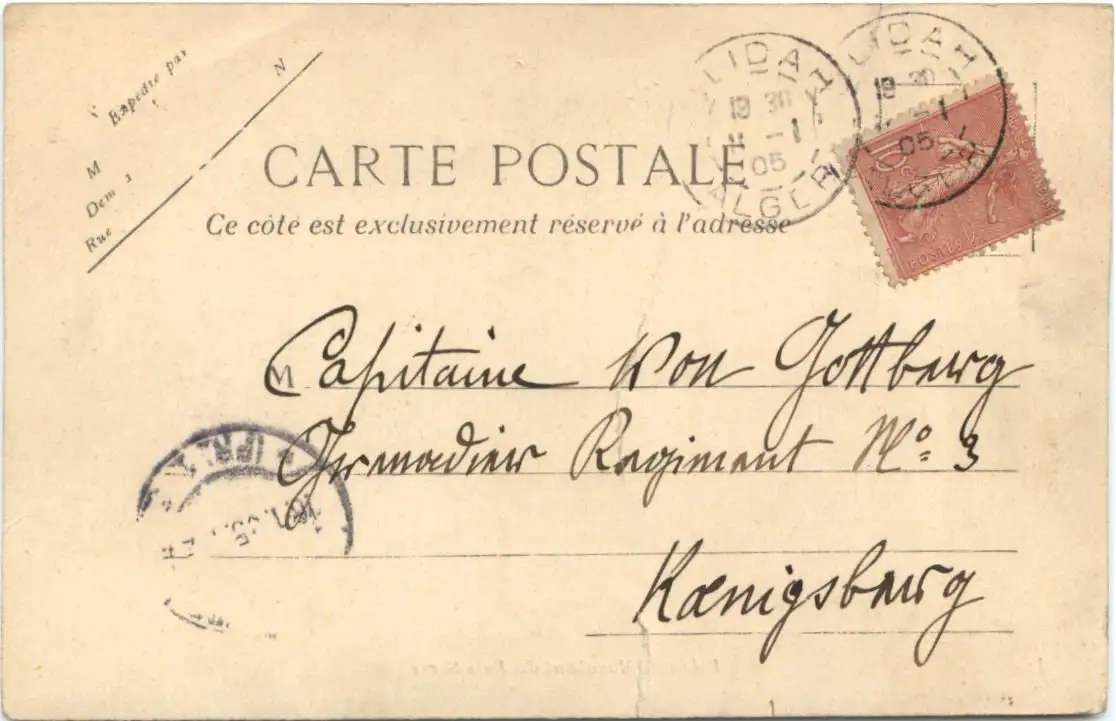 Expédié par
N
M
Rue
CARTE POSTALE
Ce côté est exclusivement réservé à l'adresse
LIDAH
18 30
11 -1
05
ALGER
LIDAH
18 30
-1
05
POSTES
M Capitaine von Gottberg
Grenadier Regiment No 3
Kœnigsberg
(PR.)